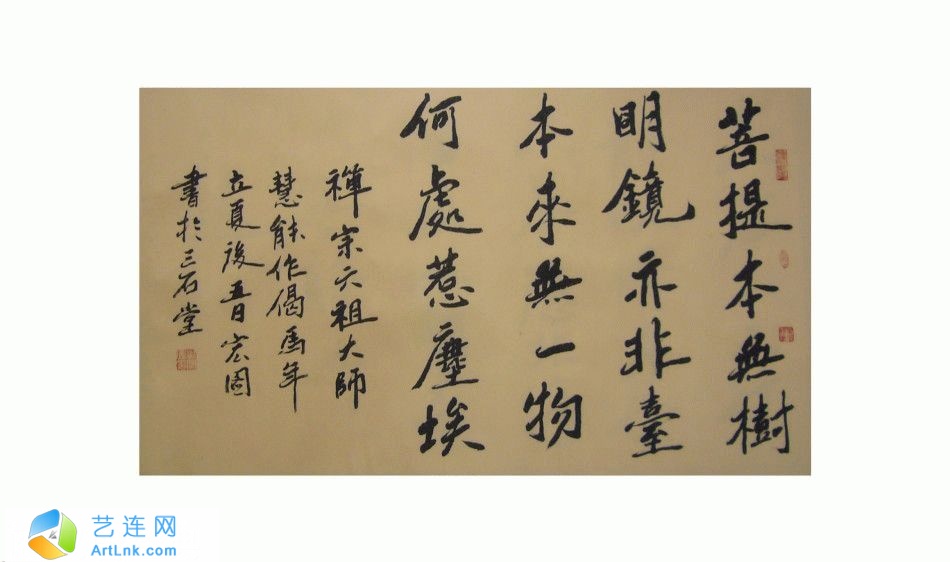 菩提本無樹
明鏡亦非臺
本來無一物
何處惹塵埃
禪宗六祖大師
慧能作偈馬年
立夏後五日宏图
書於三石堂
艺连网
ArtLnk.com